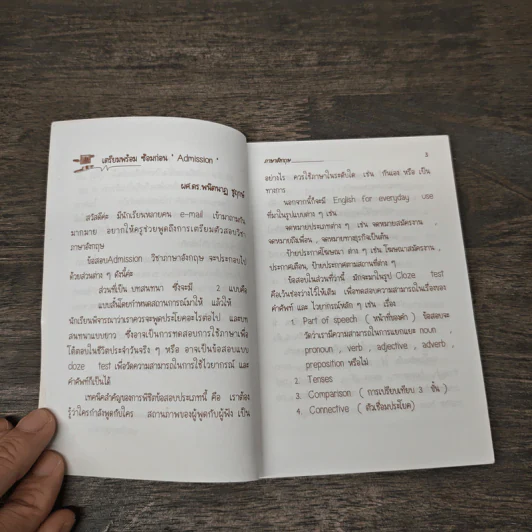 เตรียมพร้อม ซ้อมก่อน ' Admission '
ผศ.ดร.พนิตนาฏ ชูฤกษ์
สวัสดีค่ะ มีนักเรียนหลายคน e-mail เข้ามาถามกัน
มากมาย อยากให้ครูช่วยพูดถึงการเตรียมตัวสอบวิชา
ภาษาอังกฤษ
ข้อสอบAdmission วิชาภาษาอังกฤษ จะประกอบไป
ด้วยส่วนต่าง ๆ ดังนี้ค่ะ
ส่วนที่เป็น บทสนทนา ซึ่งจะมี 2 แบบคือ
แบบสั้นโดยกำหนดสถานการณ์มาให้ แล้วให้
นักเรียนพิจารณาว่าเราควรจะพูดประโยคอะไรต่อไป และบท
สนทนาแบบยาว ซึ่งอาจเป็นการทดสอบการใช้ภาษาเพื่อ
โต้ตอบในชีวิตประจำวันจริง ๆ หรือ อาจเป็นข้อสอบแบบ
cloze test เพื่อวัดความสามารถในการใช้ไวยากรณ์ และ
คำศัพท์ก็เป็นได้
เทคนิคสำคัญของการพิชิตข้อสอบประเภทนี้ คือ เราต้อง
รู้ว่าใครกำลังพูดกับใคร สถานภาพของผู้พูดกับผู้ฟัง เป็น
ภาษาอังกฤษ 3
อย่างไร ควรใช้ภาษาในระดับใด เช่น กันเอง หรือ เป็น
ทางการ
นอกจากนี้ก็จะมี English for everyday use
ที่มาในรูปแบบต่าง ๆ เช่น
จดหมายประเภทต่าง ๆ เช่น จดหมายสมัครงาน ,
จดหมายถึงเพื่อน , จดหมายทางธุรกิจเป็นต้น
ป้ายประกาศโฆษณา ต่าง ๆ เช่น โฆษณาสมัครงาน ,
ประกาศเตือน, ป้ายประกาศตามสถานที่ต่าง ๆ
ข้อสอบในส่วนที่ว่านี้ มักจะมาในรูป Cloze test
คือเว้นช่องว่างไว้ให้เติม เพื่อทดสอบความสามารถในเรื่องของ
คำศัพท์ และ ไวยากรณ์หลัก ๆ เช่น เรื่อง
1. Part of speech ( หน้าที่ของคำ ) ข้อสอบจะ
วัดว่าเรามีความสามารถในการแยกแยะ noun ,
pronoun , verb , adjective , adverb ,
preposition หรือไม่
2. Tenses
3. Comparison ( การเปรียบเทียบ 3 ขั้น )
4. Connective ( ตัวเชื่อมประโยค)